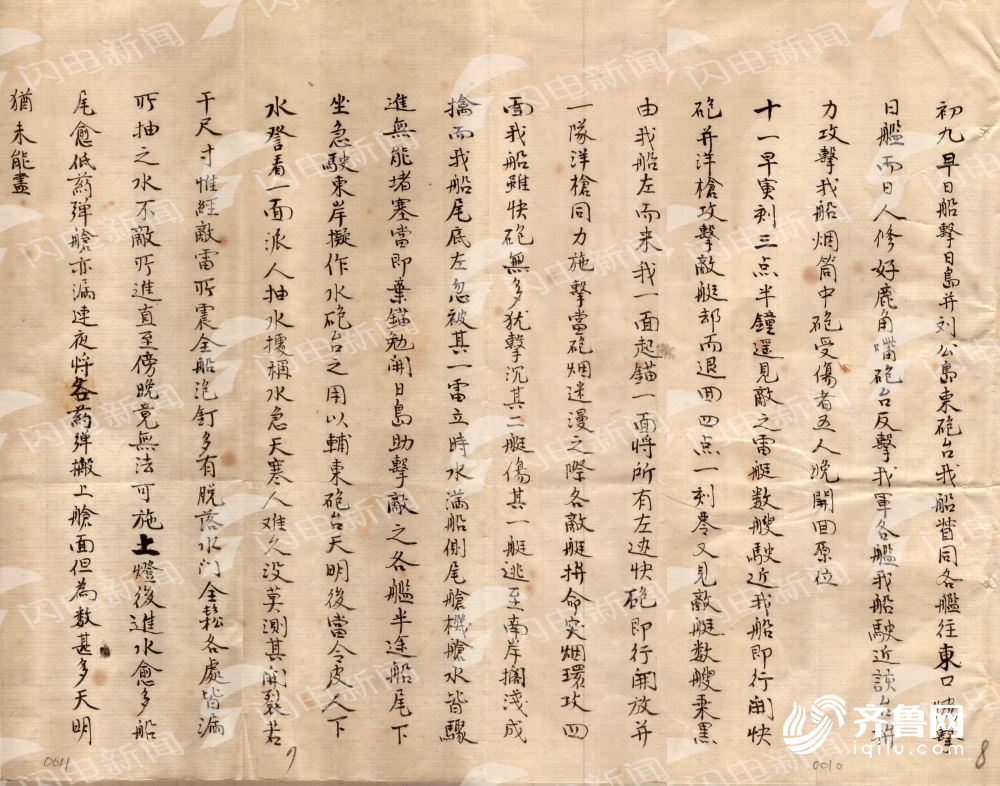 初九早日船擊日島并列公島東砲台我船皆同各艦往東口
日艦而日人修好鹿角嘴砲台反擊我軍各艦我船駛近該台拼
力攻擊我船烟筒中砲受傷者五人晚開回原位
十一早寅刻三点半鐘遥見敵之雷艇数艘駛近我船即行開快
砲并洋槍攻擊敵艇却而退囬四点一刻零又見敵艇数艘乘黑
由我船左而来我一面起錨一面将所有左边快砲即行開放并
一隊洋槍同力施擊當砲烟迷漫之際各敵艇拼命突烟環攻四
面我船雖快砲無多犹擊沉其二艇傷其一艇逃至南岸擱淺成
擒而我船尾底左忽被其一雷立時水滿船側尾艙機艙水皆驟
進無能堵塞當即棄錨勉開日島助擊敵之各艦半途船尾下
坐急駛東岸擬作水砲台之用以輔東砲台天明後當令皮人下
水登看一面派人抽水擾稱水急天寒人难久没莫測其開裂若
干尺寸惟經敵雷所震全船泡釘多有脱落水门全鬆各處皆漏
所抽之水不敵所進直至傍晚竟無法可施上燈後進水愈多船
尾愈低葯弹艙亦漏連夜将各葯弹搬上艙面但為数甚多天明
猶未能盡
0011
9
0010
8
齐鲁网
iqilu.com
闪电新闻